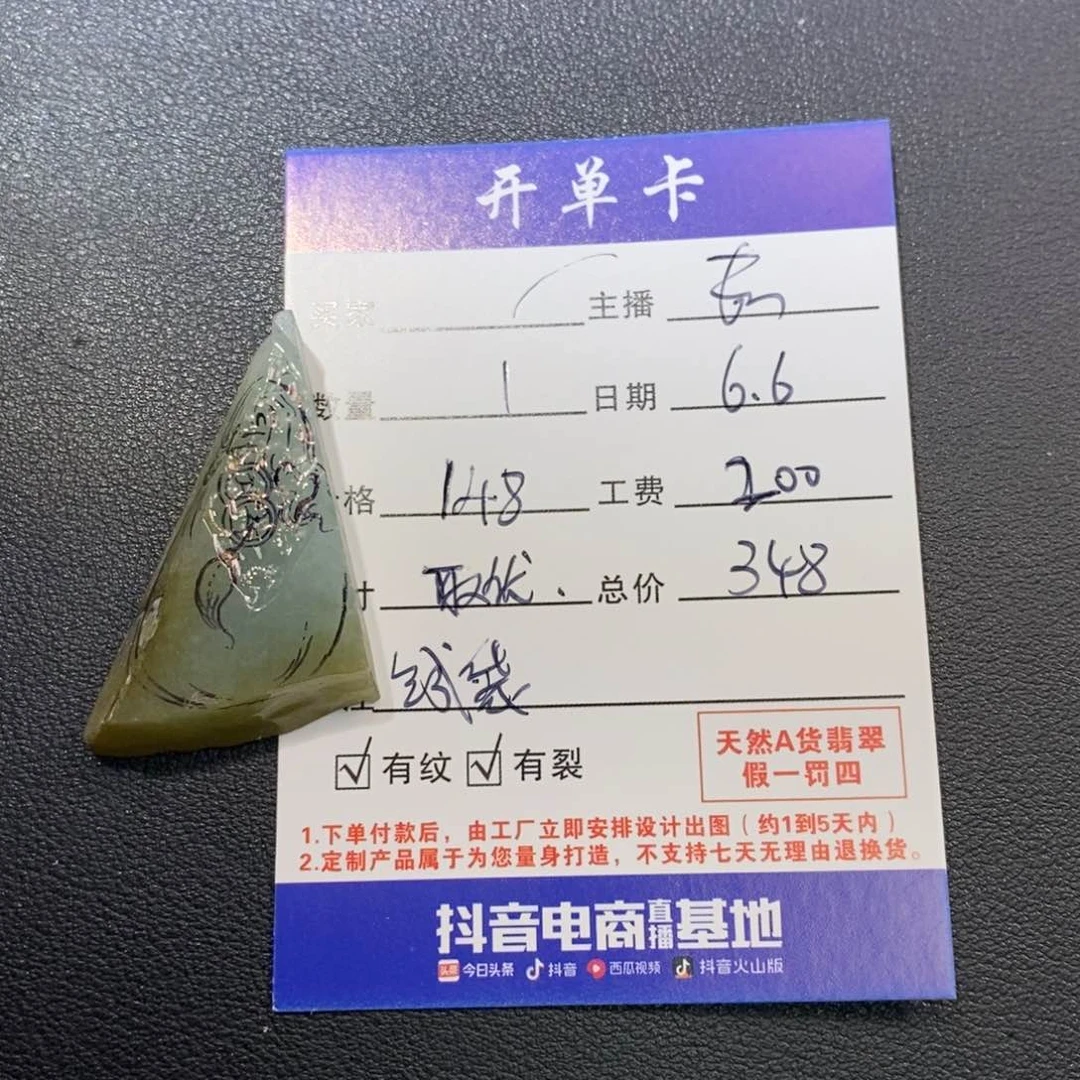 开单卡
买家 主播
数量 1 日期 6.6
格 148 工费 200
计 取优. 总价 348
注 绒袋
☑有纹 ☑有裂
天然A货翡翠
假一罚四
1.下单付款后，由工厂立即安排设计出图（约1到5天内）
2.定制产品属于为您量身打造，不支持七天无理由退换货。
抖音电商直播基地
头条 今日头条 抖音 西瓜视频 抖音火山版